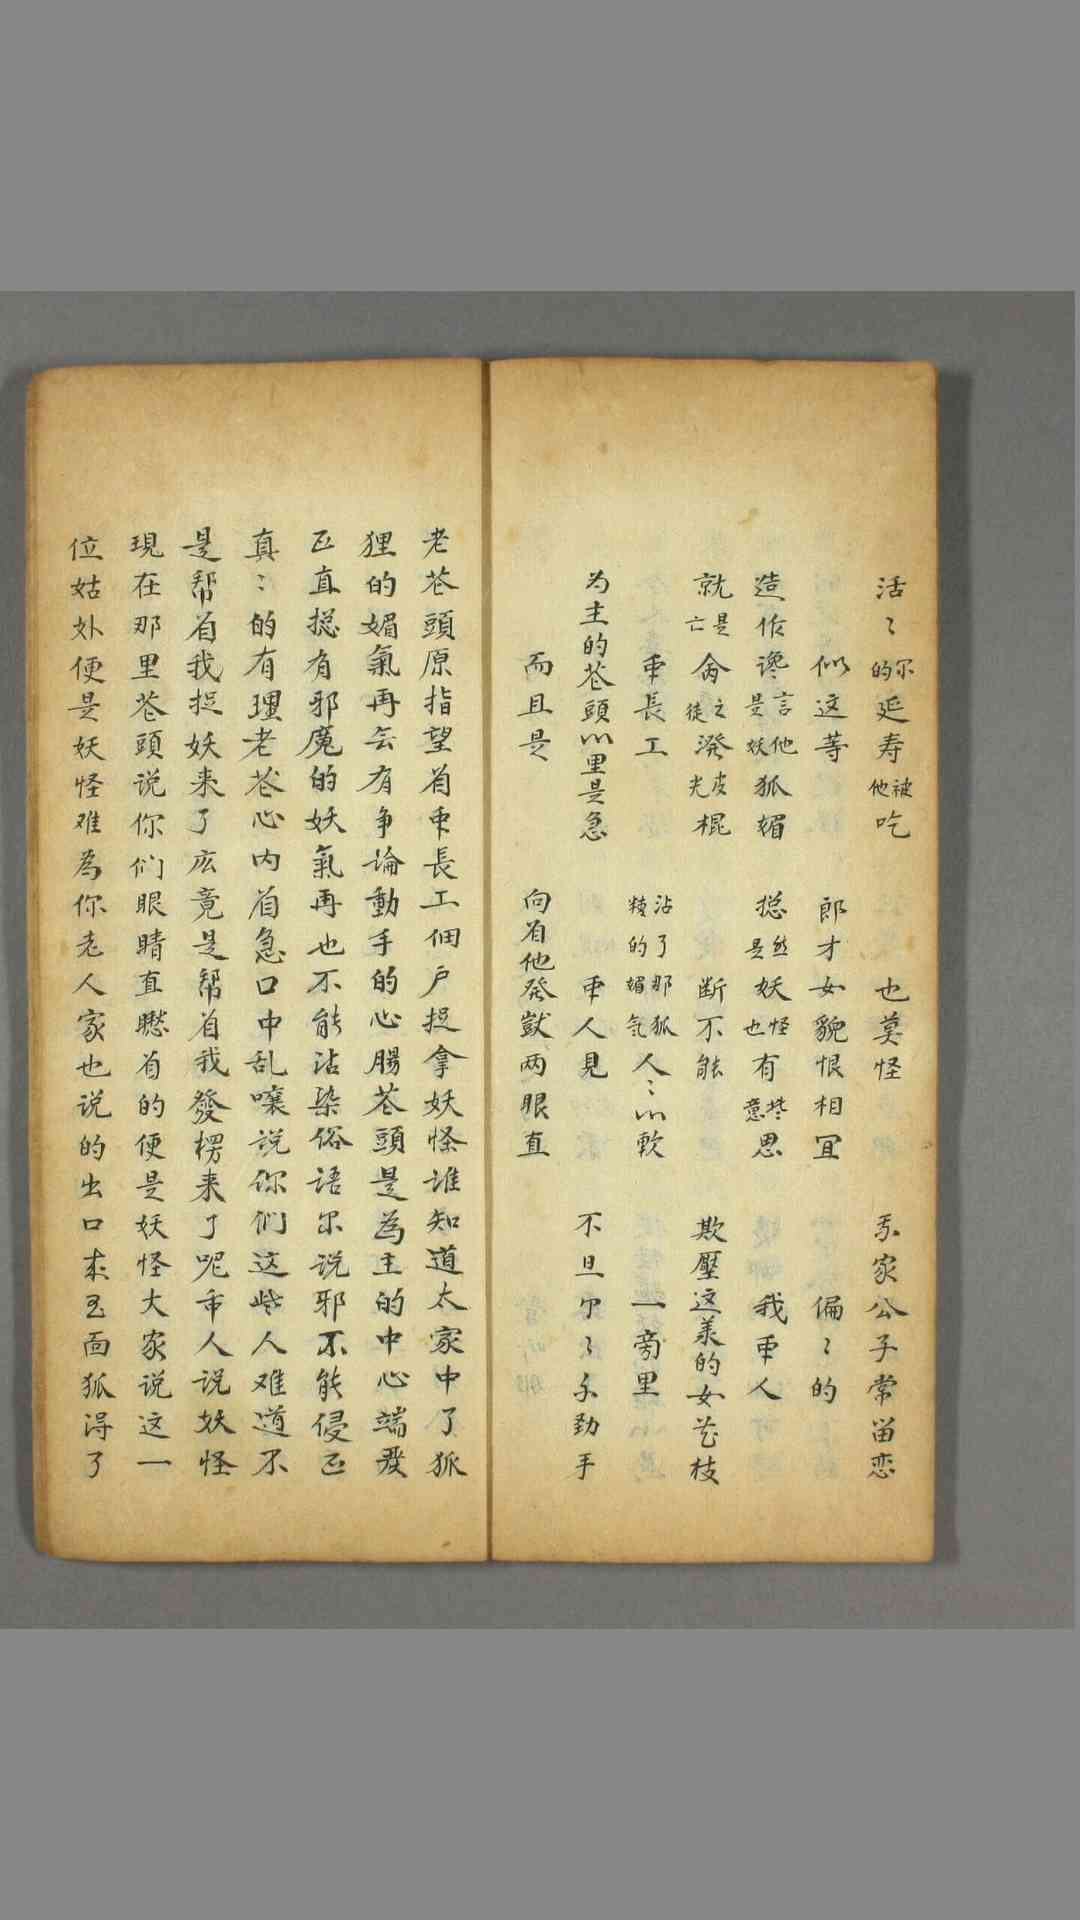 活〻的尔延寿他被吃 也莫怪 我家公子常留恋
似这等 郎才女貌恨相宜 偏〻的
造作谗是言妖他狐媚 摠是然妖也怪有意些思 我众人
就亡是禽徒之泼光皮棍 断不能 欺壓这美的女花枝
众長工 沾了那狐
粧的媚気人〻心軟 一旁里
为主的苍頭心里是急 众人見 不旦
而且是 向着他發獃两眼直
老苍頭原指望着众長工佃户捉拿妖怪谁知道大家中了狐
狸的媚氣再会有争論動手的心腸苍頭是為主的中心端發
正直摠有邪魔的妖氣再也不能沾染俗语尔说邪不能侵正
真〻的有理老苍心内着急口中乱嚷说你们这些人难道不
是帮着我捉妖来了広竟是帮着我發楞来了呢众人说妖怪
現在那里苍頭说你们眼睛直瞅着的便是妖怪大家说这一
位姑外便是妖怪难為你老人家也说的出口来玉面狐得了